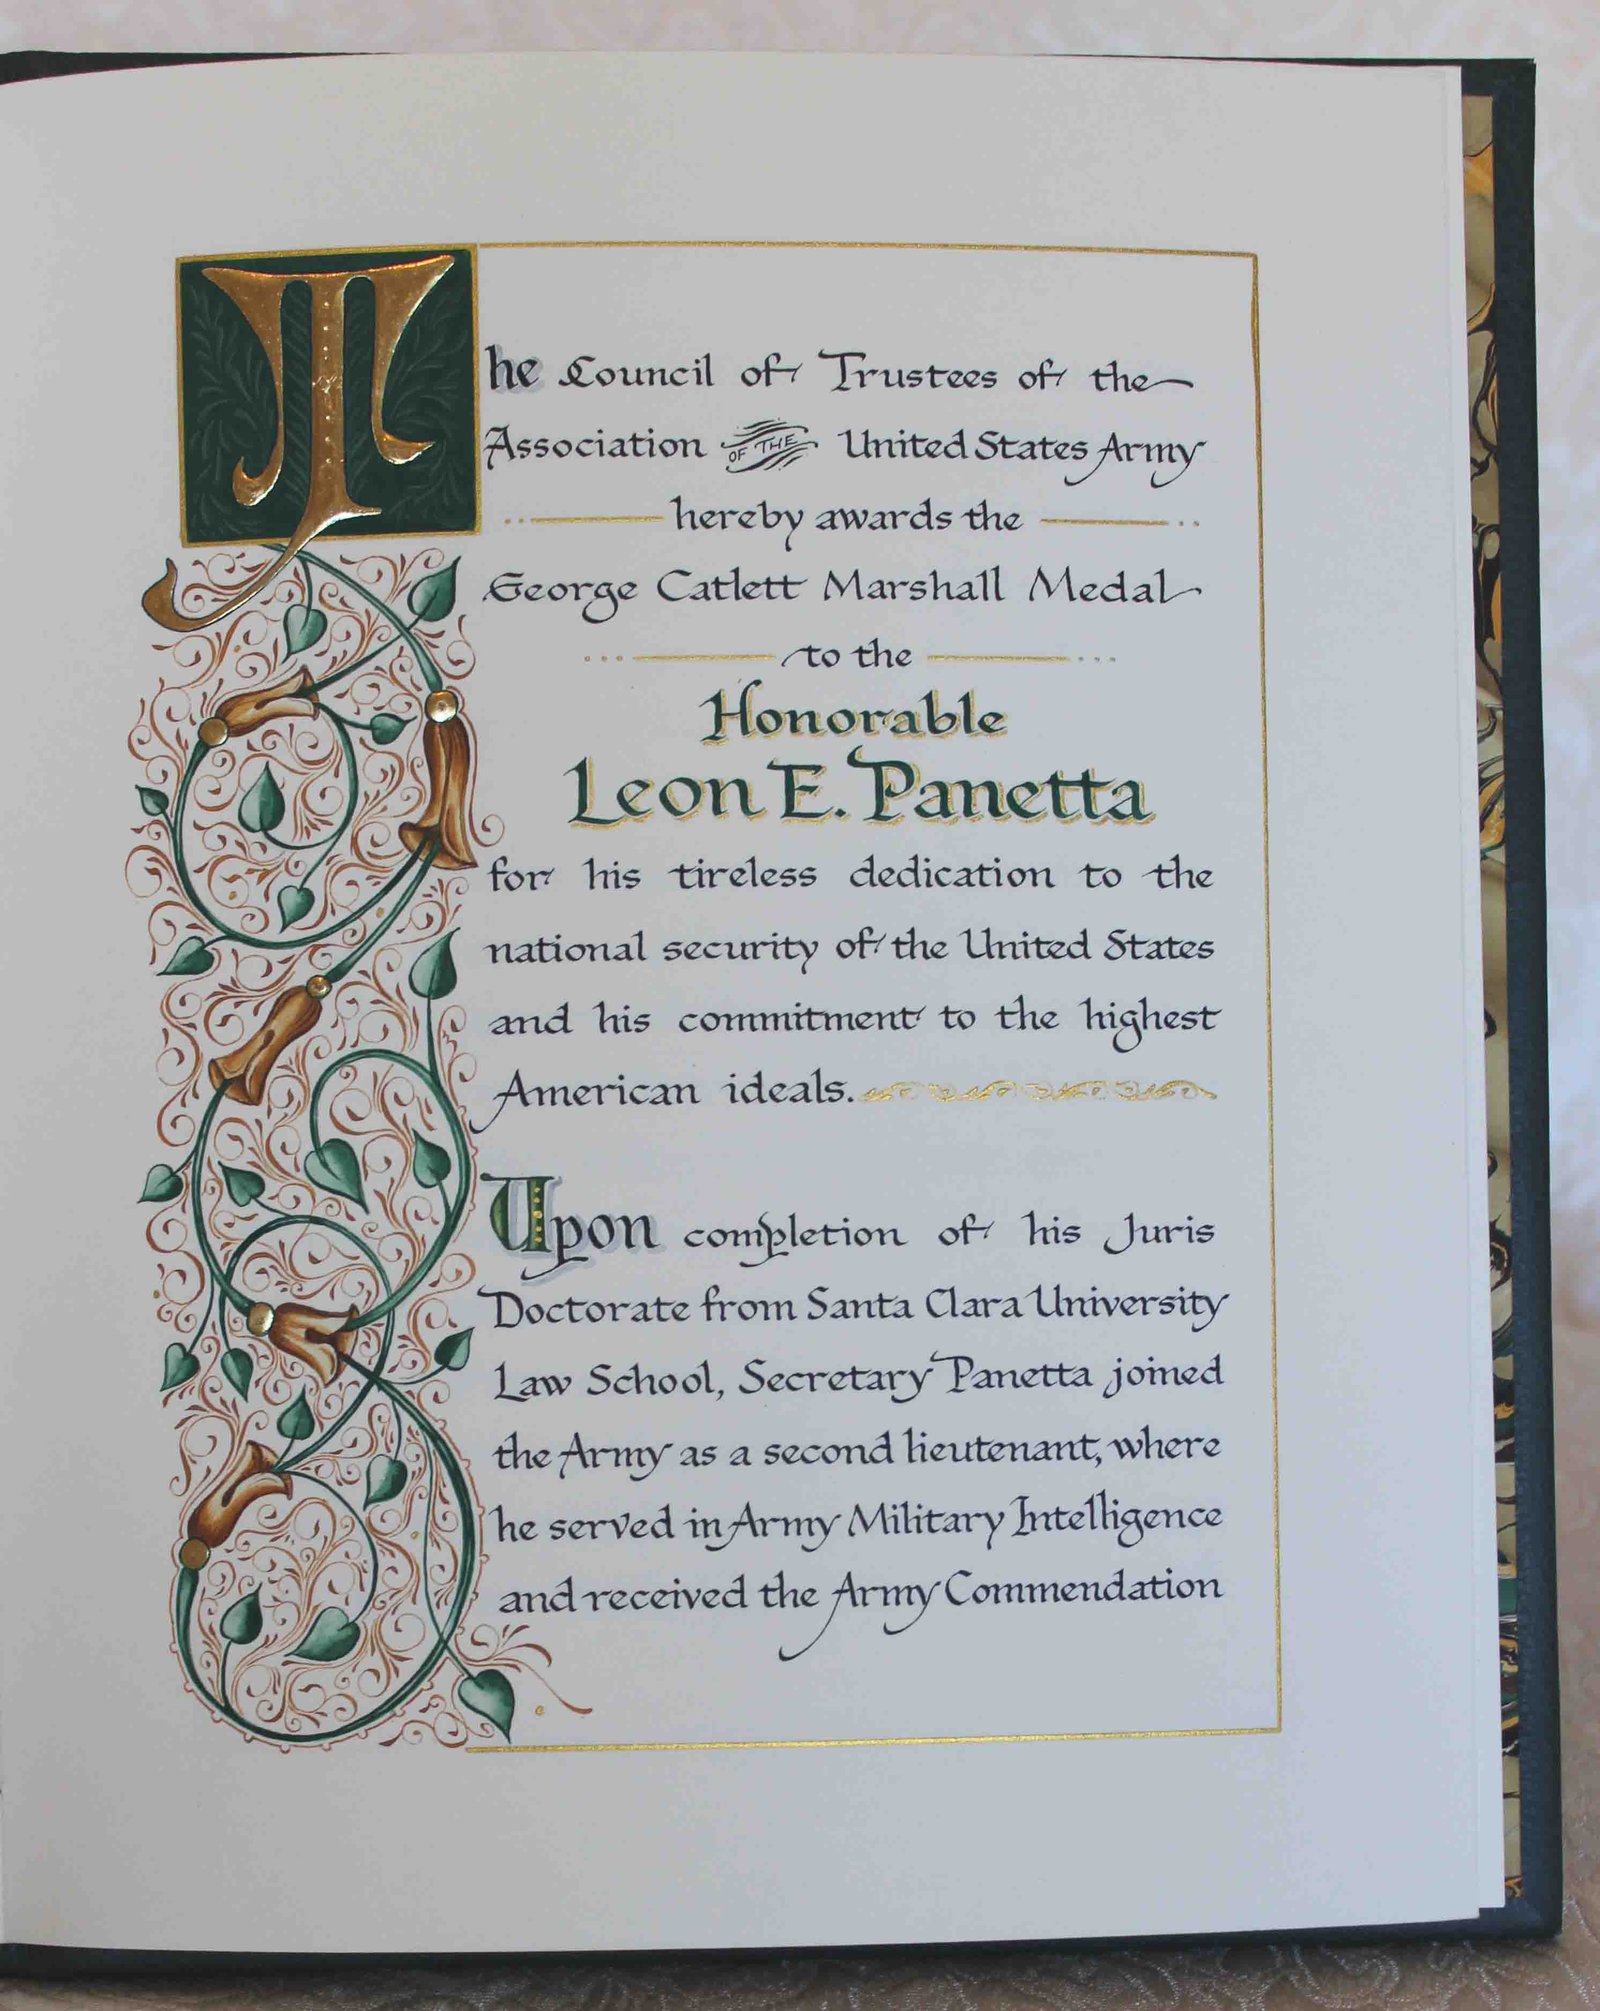 The Council of Trustees of the
Association OF THE United States Army
hereby awards the
George Catlett Marshall Medal
to the
Honorable
Leon E. Panetta
for his tireless dedication to the
national security of the United States
and his commitment to the highest
American ideals.
Upon completion of his Juris
Doctorate from Santa Clara University
Law School, Secretary Panetta joined
the Army as a second lieutenant, where
he served in Army Military Intelligence
and received the Army Commendation